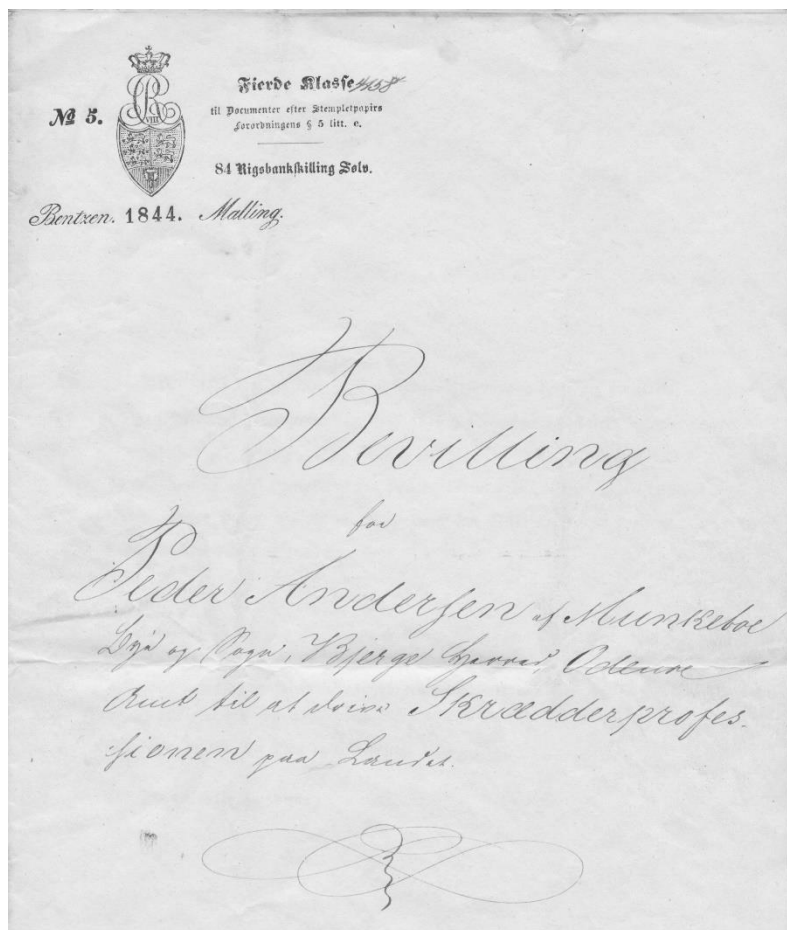 Fierde Klasse
№ 5.
til Documenter efter Stempletpapirs
Forordningens § 5 litt. c.
84 Rigsbankskilling Sølv.
Bentzen. 1844. Malling.
Bevilling
for
Peder Andersen af Munkeboe
Bye og Sogn, Bjerge Herred, Odense
Amt til at drive Skrædderprofes-
sionen paa Landet.